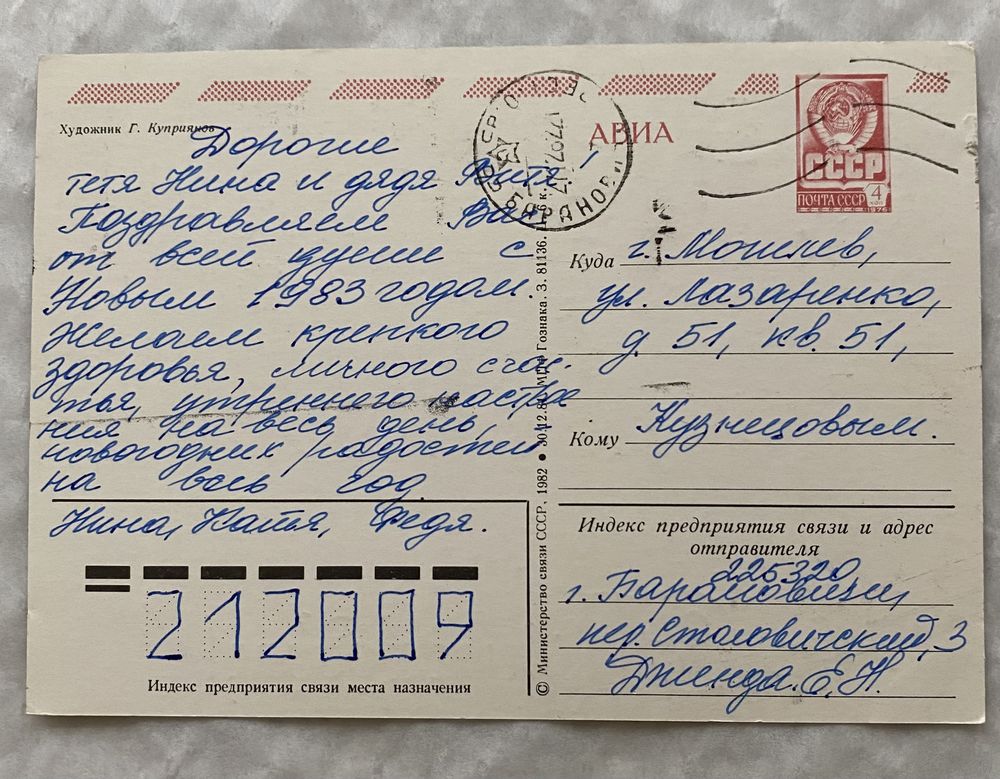 Художник Г. Куприянов
Дорогие
тетя Нина и дядя Витя!
Поздравляем Вас
от всей души с
Новым 1983 годом.
Желаем крепкого
здоровья, личного счас-
тья, утреннего настрое
ния на весь день,
новогодних радостей
на весь год.
Нина, Катя, Федя.
212009
Индекс предприятия связи места назначения
© Министерство связи СССР, 1982 • 30.12.8 МПФ Гознака. З. 81136.
АВИА
БАРАНОВИ
СССР
4
коп
ПОЧТА СССР
1976
Куда г. Могилев,
ул. Лазаренко,
д. 51, кв. 51,
Кому Кузнецовым.
Индекс предприятия связи и адрес
отправителя
225320
г. Барановичи,
пер. Столовичский, 3
Дженда. Е. Н.